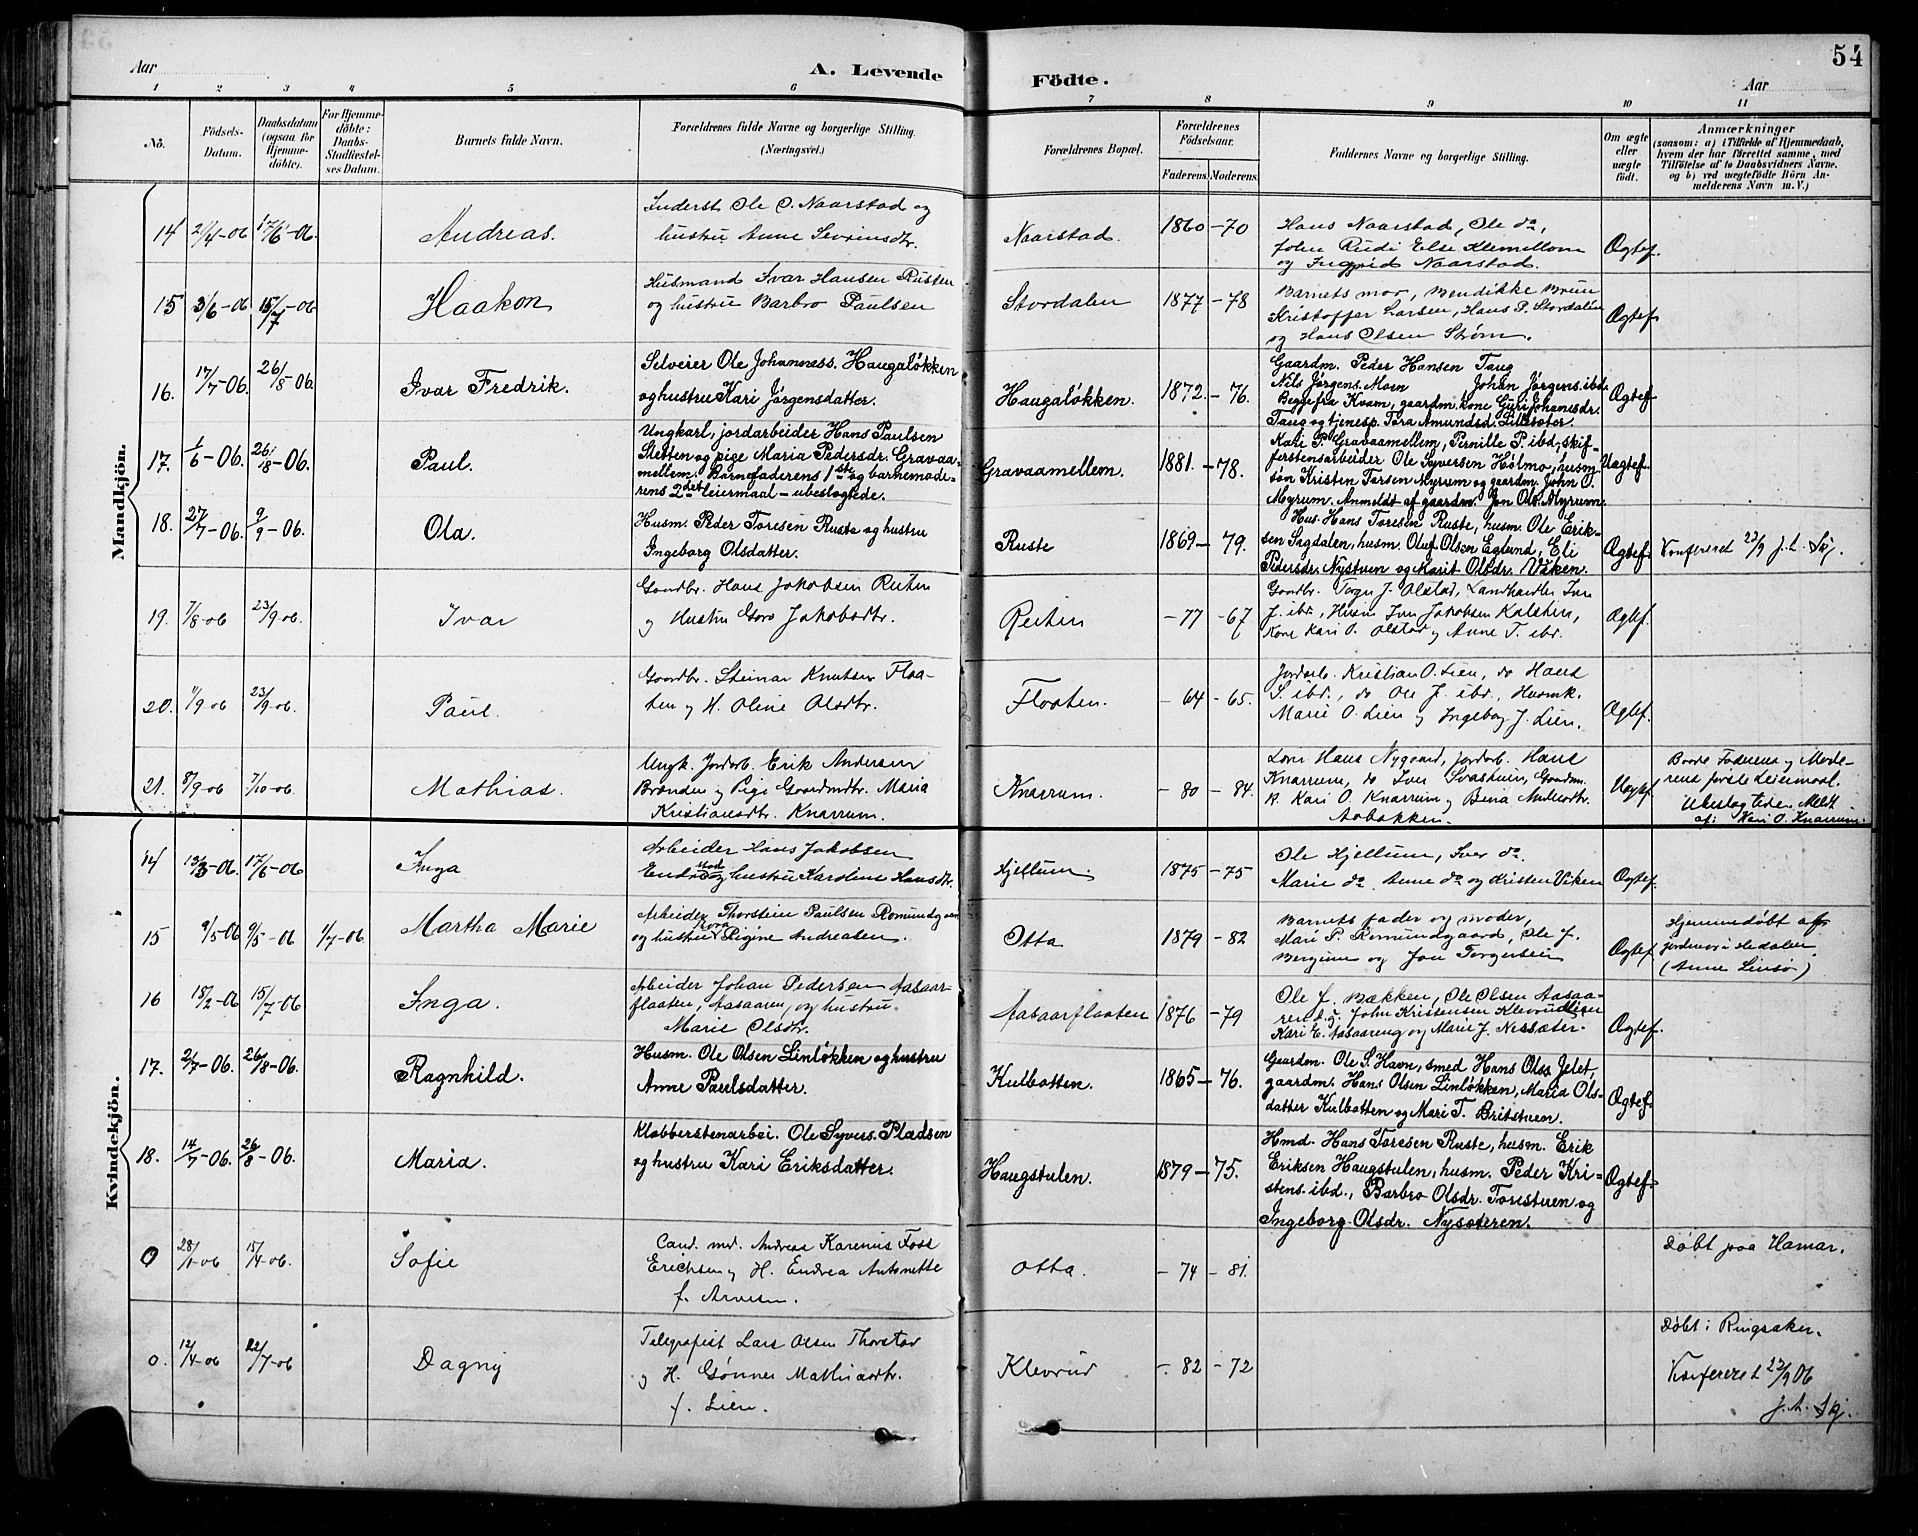 54
Aar
A. Levende
Födte.
Aar
1 2 3 4 5 6 7 8 9 10 11
No.
Födsels-
Datum.
Daabsdatum
(ogsaa for
Hjemme-
döbte).
For Hjemme-
döbte:
Daabs-
Stadfæstel-
ses Datum.
Barnets fulde Navn.
Forældrenes fulde Navne og borgerlige Stilling.
(Næringsvei.)
Forældrenes Bopæl.
Forældrenes
Födselsaar.
Faderens. Moderens.
Faddernes Navne og borgerlige Stilling.
Om ægte
eller
uægte
födt.
Anmærkninger
(saasom: a) i Tilfælde af Hjemmedaab,
hvem der har forrettet samme, med
Tilföielse af to Daabsvidners Navne.
og b) ved uægtefödte Börn An-
melderens Navn m. V.)
Mandkjön.
14 21/4-06 17/6-06. Andreas.
Inderst Ole O. Naarstad og
hustru Anne Sevrinsdtr.
Naarstad. 1860 -70
Hans Naarstad, Ole do,
John Rudi Else Klemellom
og Ingrid Naarstad.
Ægtef.
15 3/6-06 15/7-06 Haakon
Husmand Ivar Hansen Rusten
og hustru Barbro Paulsen
Stordalen 1877 -78
Barnets mor, Bendikke Brun
Kristoffer Larsen, Hans P. Stordalen
og Hans Olsen Strøm.
Ægtef.
16. 17/7-06. 26/8-06. Ivar Fredrik.
Selveier Ole Johanness. Haugaløkken
og hustru Kari Jørgensdatter.
Haugaløkken. 1872. -76.
Gaardm. Peder Hansen Taug
Nils Jørgens. Moen Johan Jørgens. ibd.
Begge fra Kvam, gaardm. kone Guri Johannesdr.
Taug og tjenesp. Tora Amundsd. Lillesæter.
Ægtef.
17. 1/6-06. 26/8-06. Paul.
Ungkarl, jordarbeider Hans Paulsen
Sletten og pige Maria Pedersdr. Gravaa-
mellem. Barnefaderens 1ste og barnemode-
rens 2det leiermaal - ubeslægtede.
Gravaamellem. 1881. -78.
Kari P. Gravaamellem, Pernille P. ibd, skif-
ferstensarbeider Ole Syversen Holmo, husm.
søn Kristen Torsen Myrum og gaardm. John O.
Myrum. Anmeldt af gaardm. Jon Ols. Myrum.
Uægtef.
18. 27/7-06. 9/9-06. Ola.
Husm. Peder Toresen Ruste og hustru
Ingeborg Olsdatter.
Ruste 1869- 79.
Hus. Hans Toresen Ruste, husm. Ole Erik-
sen Sagdalen, husm. Oluf Olsen Eglund, Eli
Pedersdr. Nystuen og Marit Olsdr. Viken.
Ægtef.
Konfereret 23/9 J. A. Skj.
19. 7/8-06 23/9-06. Ivar
Gaardbr. Hans Jakobsen Reiten
og Hustru Goro Jakobsdtr.
Reiten -77 -67
J. ibd., Husm. Iver Jakobsen Kalsten,
Kone Kari O. Olstad og Anne T. ibd.
Ægtef.
20. 11/9 06 23/9 06. Paul.
Gaardbr. Steinar Knutsen Flaa-
ten og H. Oline Olsdtr.
Flaaten. -64 -65.
Jordarb. Kristian O. Lien, do Hans
S. ibd., do Ole J. ibd., Husmk.
Marie O. Lien og Ingeborg J. Lien.
Ægtef.
21. 8/9 06 7/10-06. Mathias.
Ungk. Jordarb. Erik Andersen
Brænden og Pige Gaardmdtr. Maria
Kristiansdtr. Knarrum.
Knarrum. -80 -84.
Hans Nygaard, Jordarb. Hans
Knarrum, do Iver
K. Kari O. Knarrum og
Uægtef.
Baade Faderens og Mode-
rens første Leiermaal.
Ubeslægtede. Meldt
af: Kari O. Knarrum.
Kvindekjön.
14 13/3-06. 17/6-06 Inga
Arbeider Hans Jakobsen
og hustru Karoline Hansdtr.
Hjellum. 1875 -75
Ole Hjellum, Iver do.
Marie do. Anne do og Kristen Viken
Ægtef.
15 9/5-06 9/5-06 1/7-06. Martha Marie
Arbeider Thorstein Paulsen Romundgaard
og hustru Rigine Andreasen.
Otta 1879 -82
Barnets fader og moder,
Mari P. Romundgaard, Ole J.
Bergum og Jon Torgersen
Ægtef.
Hjemmedøbt af
jordmor i Hedalen
(Anne Linsø)
16 18/2-06 15/7-06 Inga.
Arbeider Johan Pedersen Aasaar-
flaaten, Aasaaren, og hustru
Marie Olsdtr.
Aasaarflaaten 1876 -79
Ole J. Bækken, Ole Olsen Aasaa-
ren d.y. John Kristensen Klevrudlien
Kari E. Aasaareng og Marie J. Nissæter.
Ægtef.
17. 2/7-06. 26/8-06. Ragnhild.
Husm. Ole Olsen Linløkken og hustru
Anne Paulsdatter.
Kulbotten. 1865- 76.
Gaardm. Ole S. Havn, smed Hans Olss. Jelet,
gaardm. Hans Olsen Linløkken, Maria Ols-
datter Kulbotten og Mari T. Britstuen.
Ægtef.
18. 14/7-06. 26/8-06. Maria.
Klæbberstenarbei. Ole Syvers. Pladsen
og hustru Kari Eriksdatter.
Haugstulen. 1879- 75.
Hmd. Hans Toresen Ruste, husm. Erik
Eriksen Haugstulen, husm. Peder Kri-
stens. ibd., Barbro Olsdr. Torestuen og
Ingeborg Olsdr. Nysæteren.
Ægtef.
0 28/1-06 15/4-06. Sofie
Cand. med. Andreas Karenius Foss
Erichsen og H. Endrea Antonette
f. Arnesen.
Otta. -74 -81.
Døbt paa Hamar.
0. 12/4-06 22/7-06 Dagny
Telegrafist Lars Olsen Thorstad
og H. Gønner Mathiasdtr.
f. Lien.
Klevrud -82 -72
Døbt i Ringsaker.
Konfereret 23/9 06
J. A. Skj.